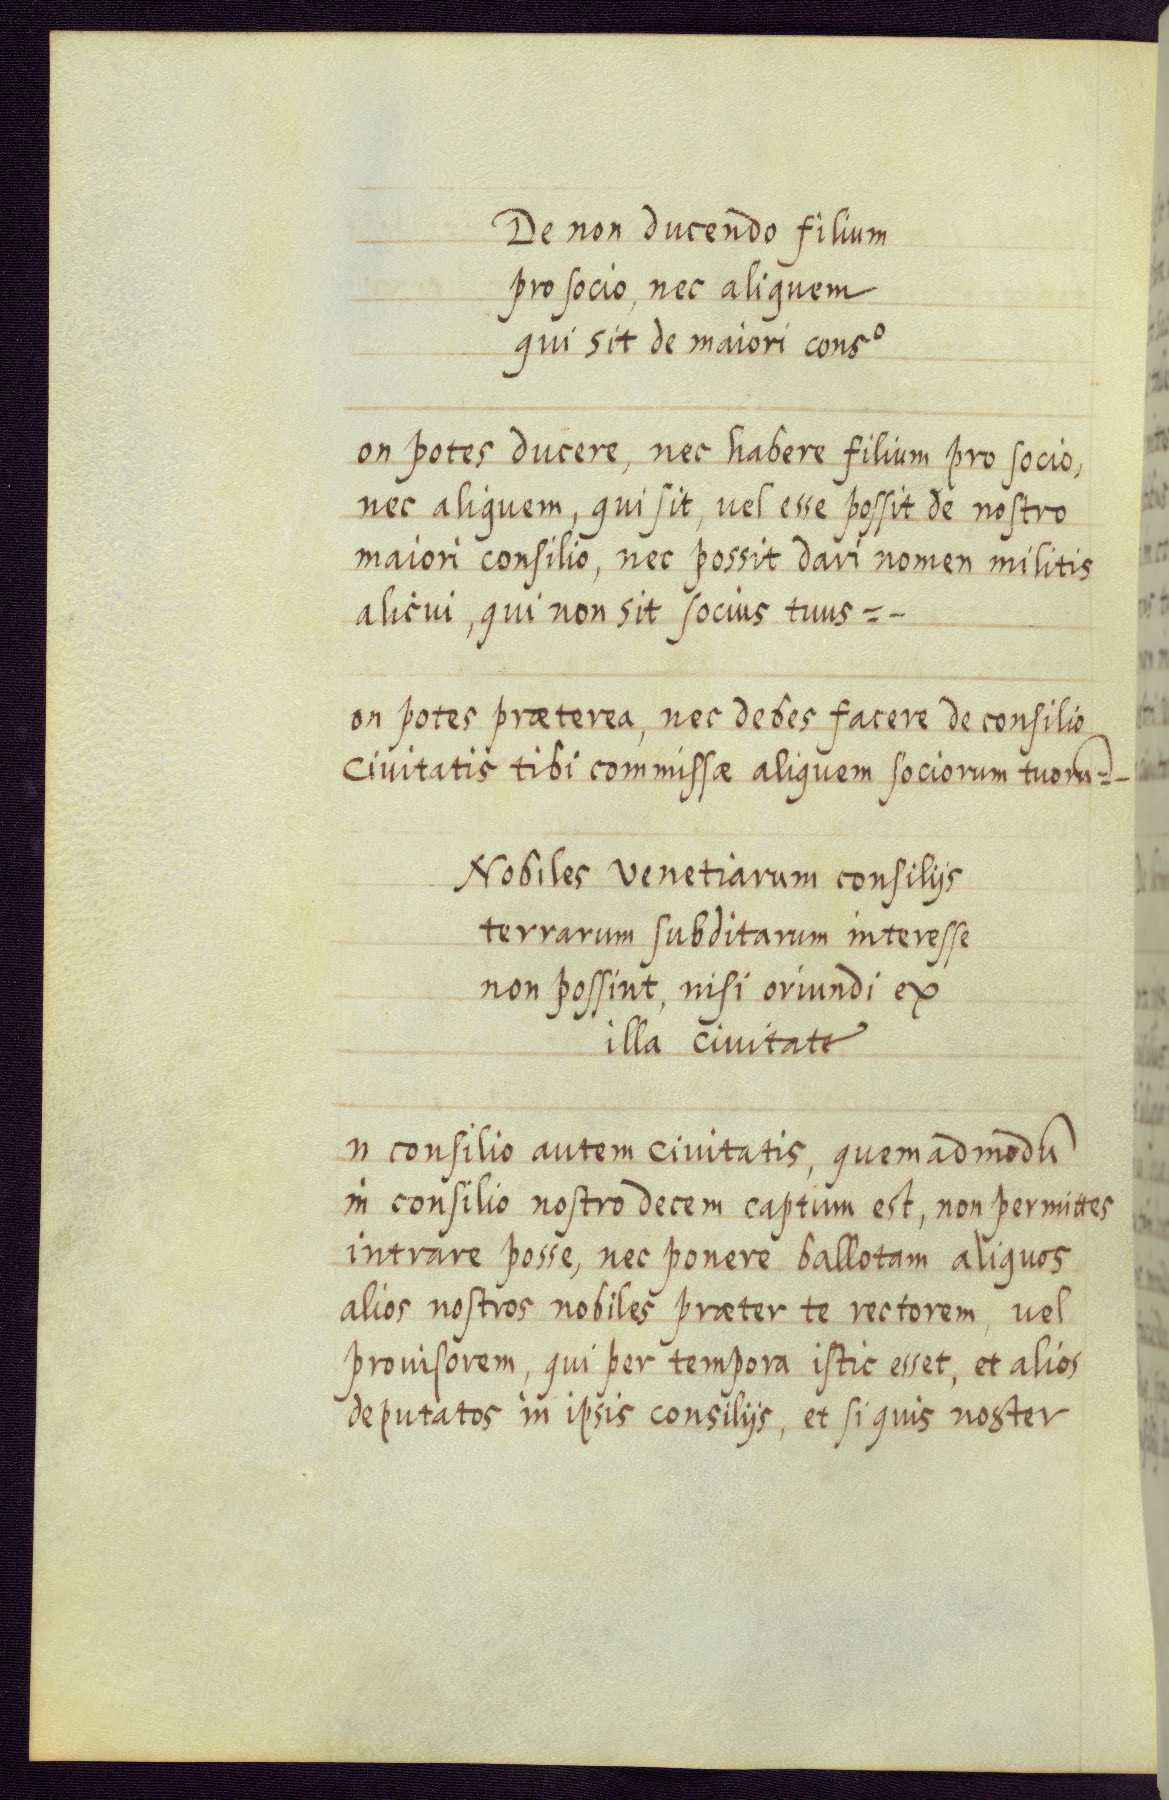 De non ducendo filium
pro socio, nec aliquem
qui sit de maiori cons°
on potes ducere, nec habere filium pro socio,
nec aliquem, qui sit, uel esse possit de nostro
maiori consilio, nec possit dari nomen militis
alicui, qui non sit socius tuus =-
on potes præterea, nec debes facere de consilio
Ciuitatis tibi commissæ aliquem sociorum tuorū=-
Nobiles Venetiarum consilijs
terrarum subditarum interesse
non possint, nisi oriundi ex
illa Ciuitate
n consilio autem Ciuitatis, quemadmodū
in consilio nostro decem captum est, non permittes
intrare posse, nec ponere ballotam aliquos
alios nostros nobiles præter te rectorem, uel
prouisorem, qui per tempora istic esset, et alios
deputatos in ipsis consilijs, et si quis noster